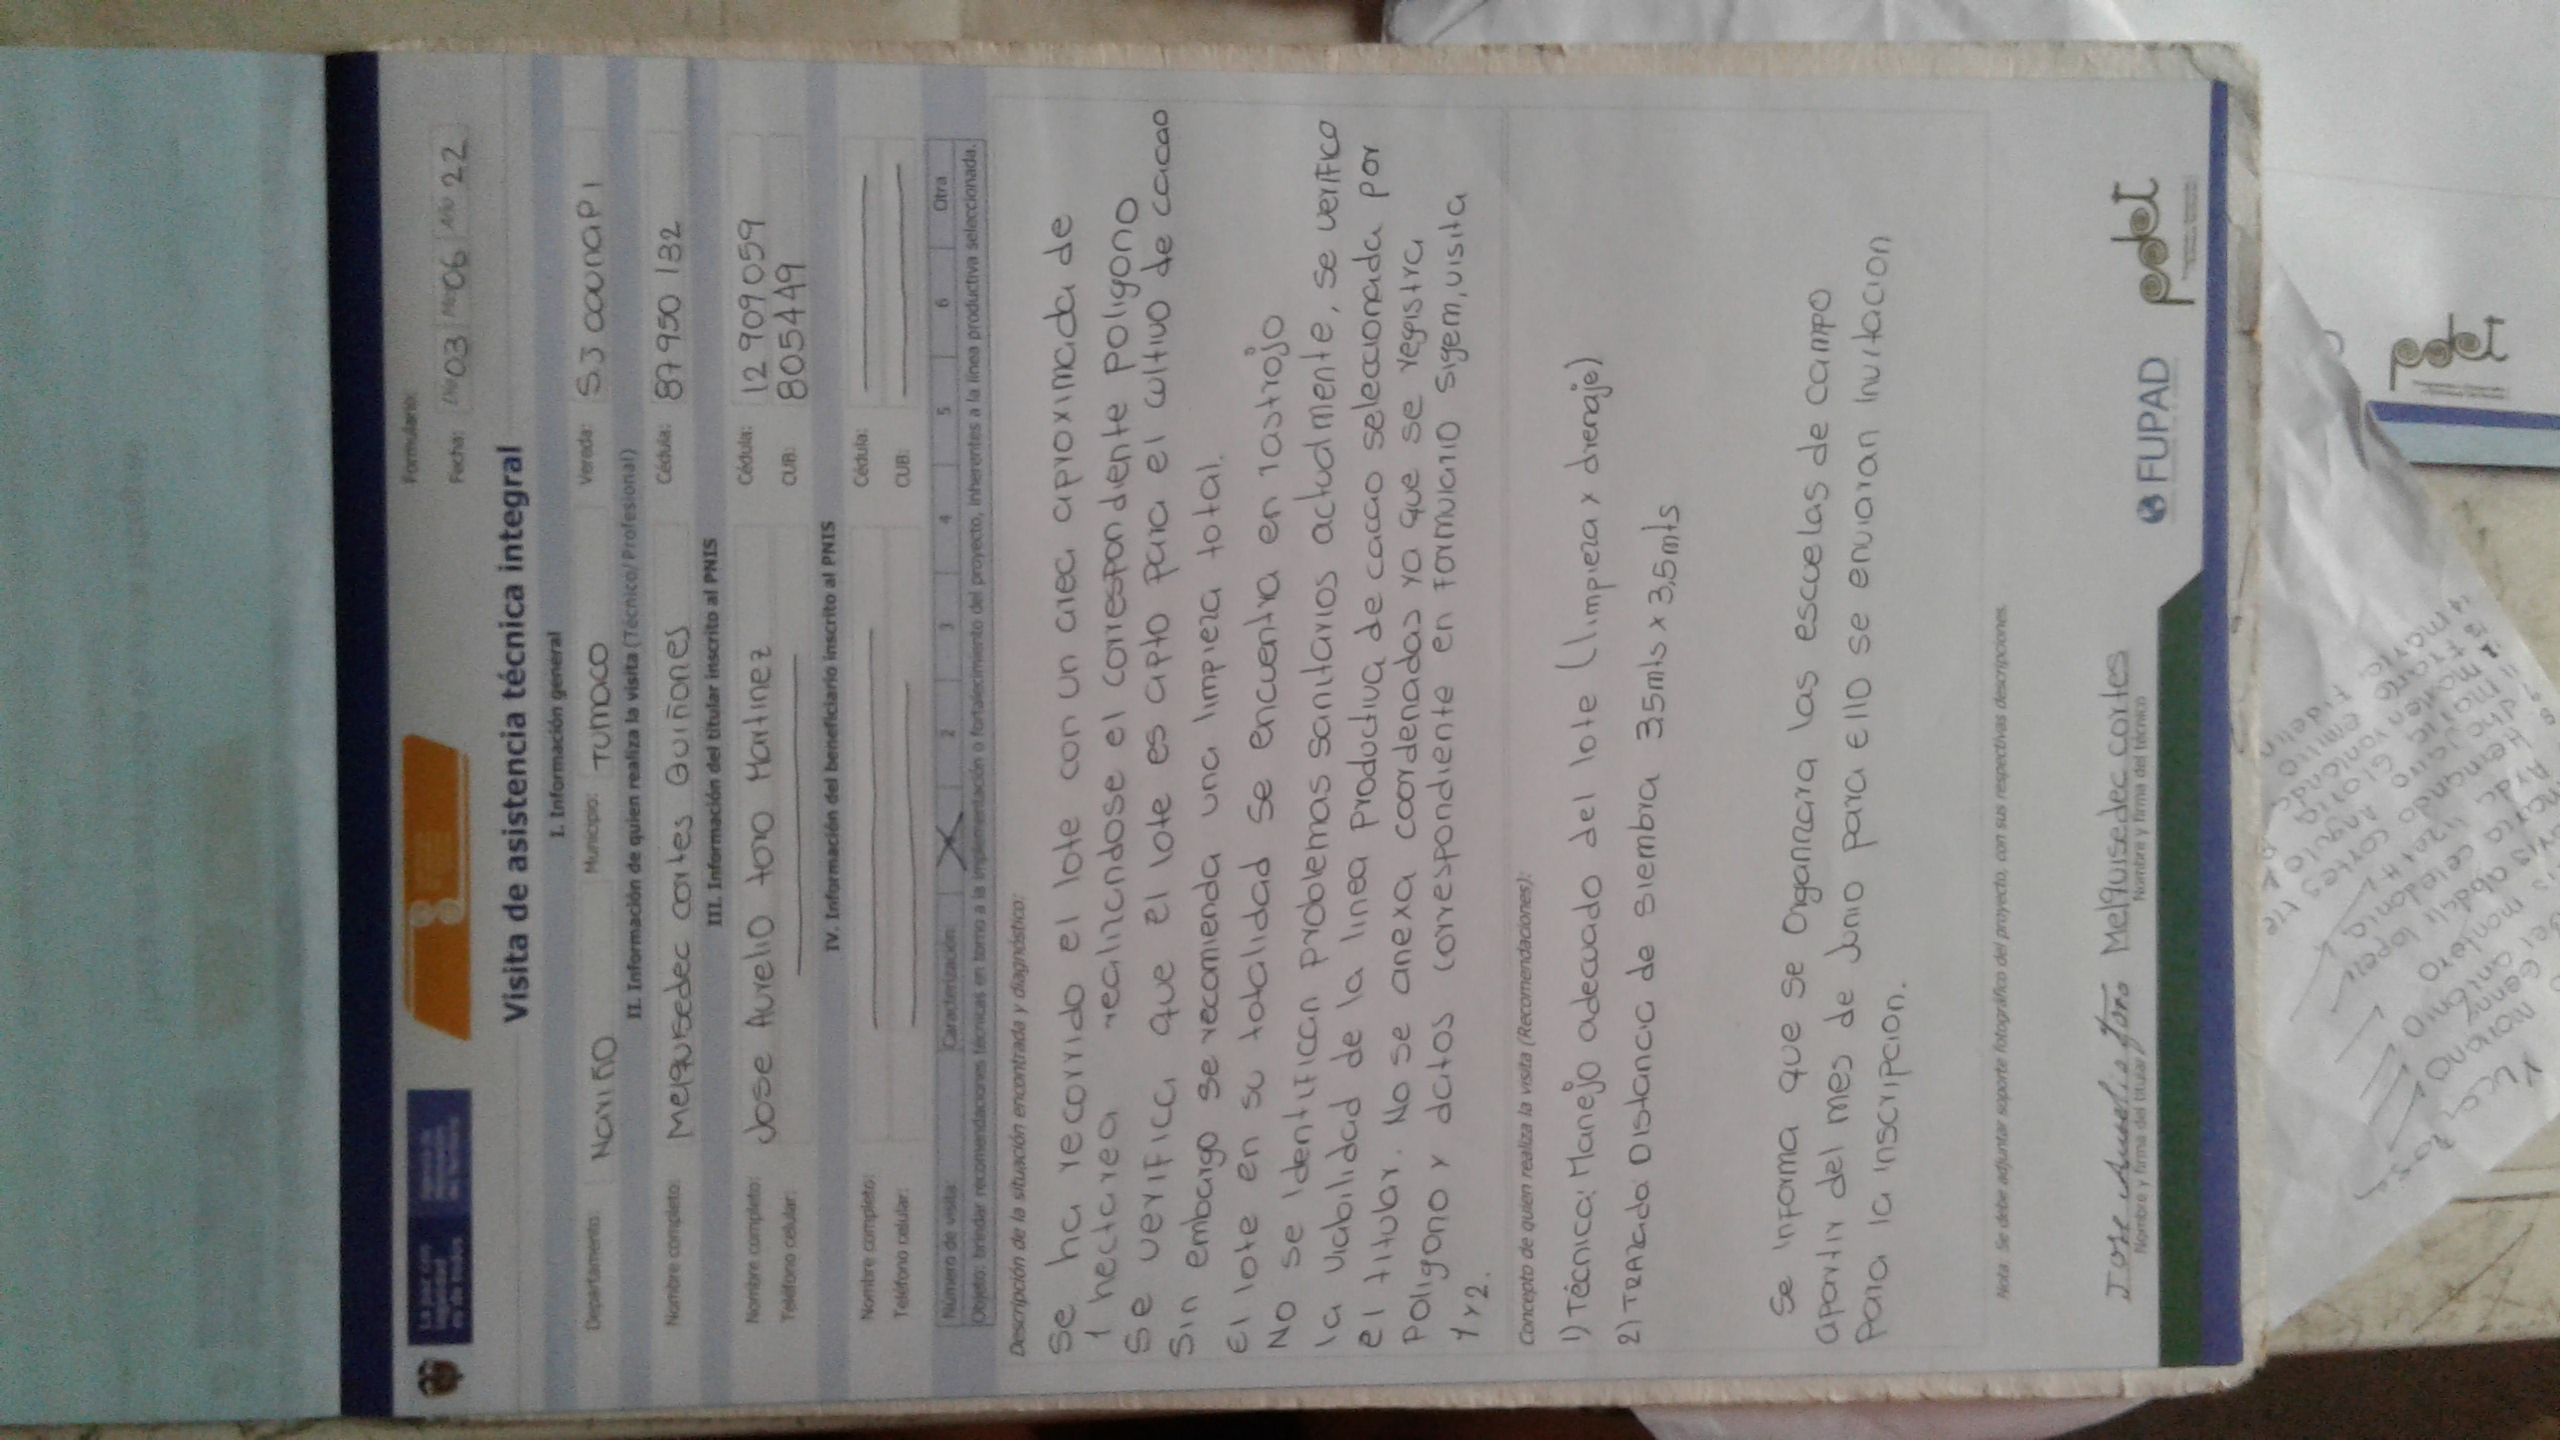 Formulario:
Fecha: Día 03 Mes 06 Año 22
Visita de asistencia técnica integral
I. Información general
Departamento: Nariño Municipio: Tumaco Vereda: SJ caunapi
II. Información de quien realiza la visita (Técnico/Profesional)
Nombre completo: Melquisedec cortes Quiñones Cédula: 87950132
III. Información del titular inscrito al PNIS
Nombre completo: Jose Aurelio toro Martinez Cédula: 12909059
Teléfono celular: CUB: 805449
IV. Información del beneficiario inscrito al PNIS
Nombre completo: Cédula:
Teléfono celular: CUB:
Número de visita: Caracterización: X 2 3 4 5 6 Otra
Objeto: brindar recomendaciones técnicas en torno a la implementación o fortalecimiento del proyecto, inherentes a la línea productiva seleccionada.
Descripción de la situación encontrada y diagnóstico:
Se ha recorrido el lote con un area aproximada de
1 hectarea realizandose el correspondiente poligono
Se verifica que el lote es apto para el cultivo de cacao
Sin embargo se recomienda una limpieza total.
El lote en su totalidad se encuentra en rastrojo
No se identifican problemas sanitarios actualmente, se verifico
la viabilidad de la linea productiva de cacao seleccionada por
el titular. No se anexa coordenadas ya que se registra
Poligono y datos correspondiente en formulario sigem, visita
1 y 2.
Concepto de quien realiza la visita (Recomendaciones):
1) Técnica: Manejo adecuado del lote (limpieza y drenaje)
2) Trazado: Distancia de siembra 3,5mts x 3,5mts
Se informa que se organizara las escuelas de campo
apartir del mes de Junio para ello se enviaran invitacion
Para la inscripcion.
Nota: Se debe adjuntar soporte fotográfico del proyecto, con sus respectivas descripciones.
Jose Aurelio Toro Melquisedec cortes
Nombre y firma del titular Nombre y firma del técnico
FUPAD pdet
pdet